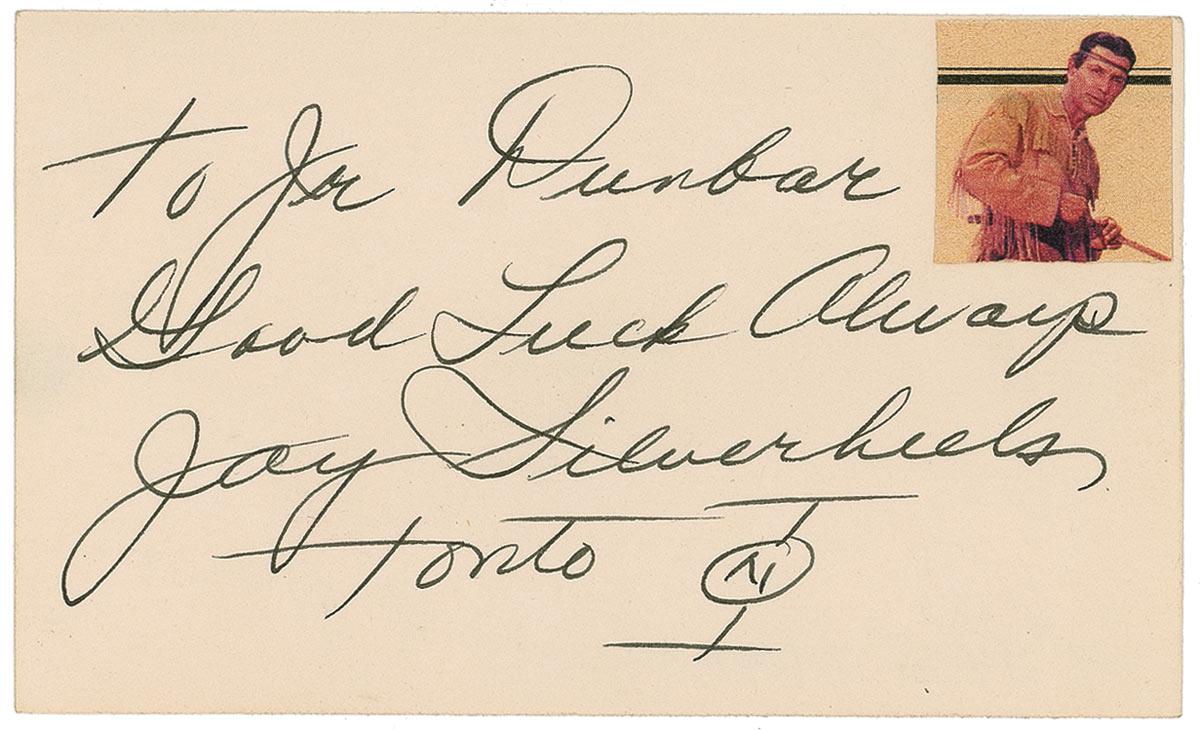 To Jr Dunbar
Good Luck Always
Jay Silverheels
Tonto